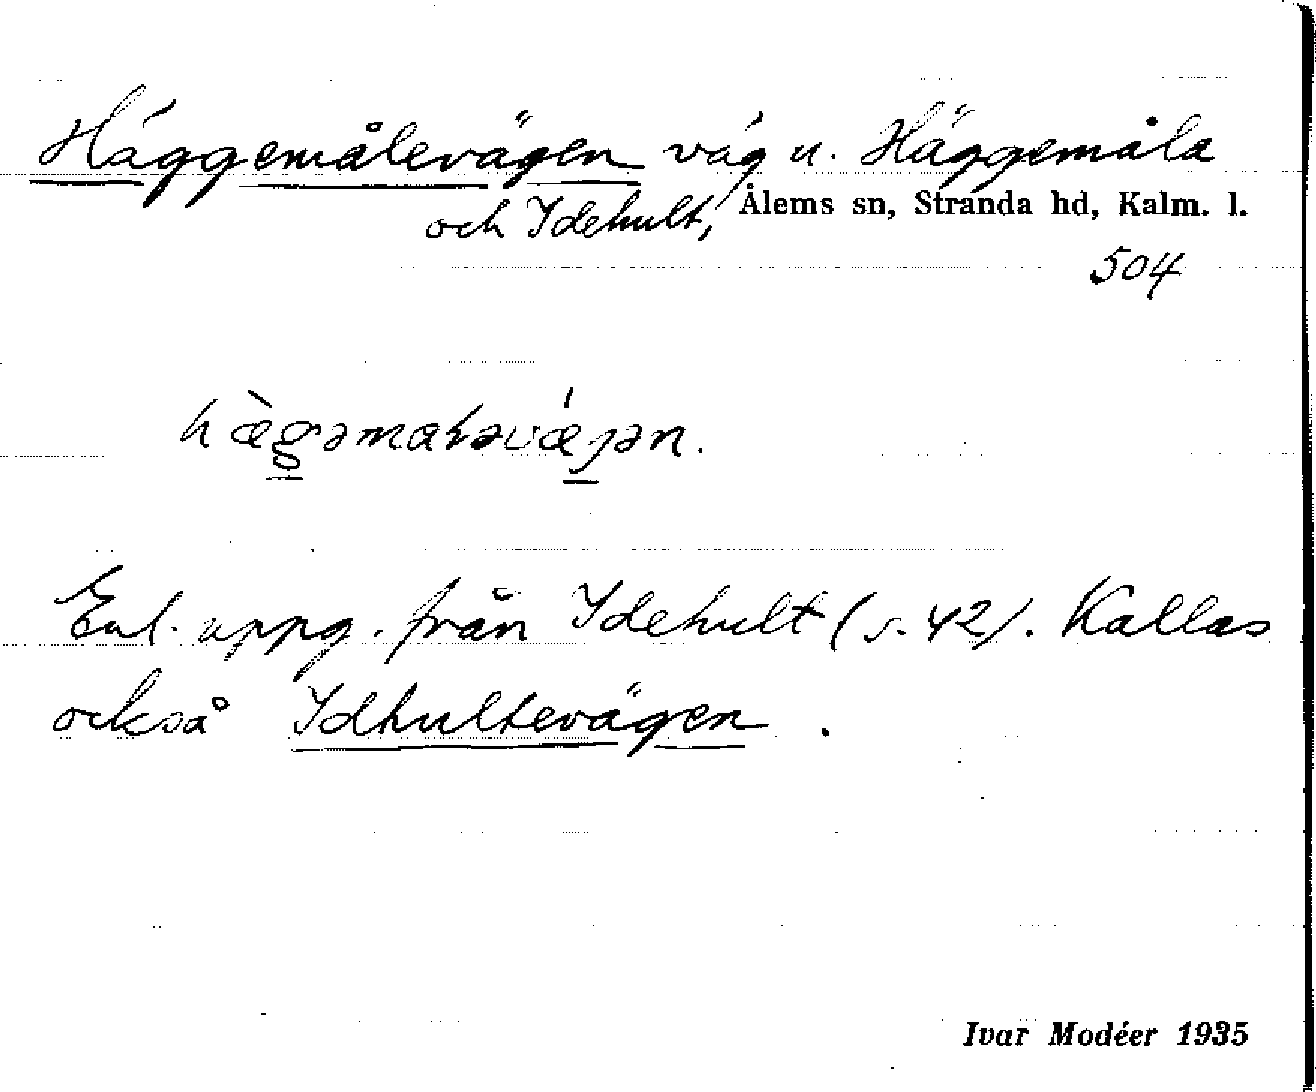 Häggemålevägen väg u. Häggemåla
och Idehult, Ålems sn, Stranda hd, Kalm. l.
504
Enl. uppg. från Idehult (s. 42). Kallas
också Idhultevägen.
Ivar Modéer 1935